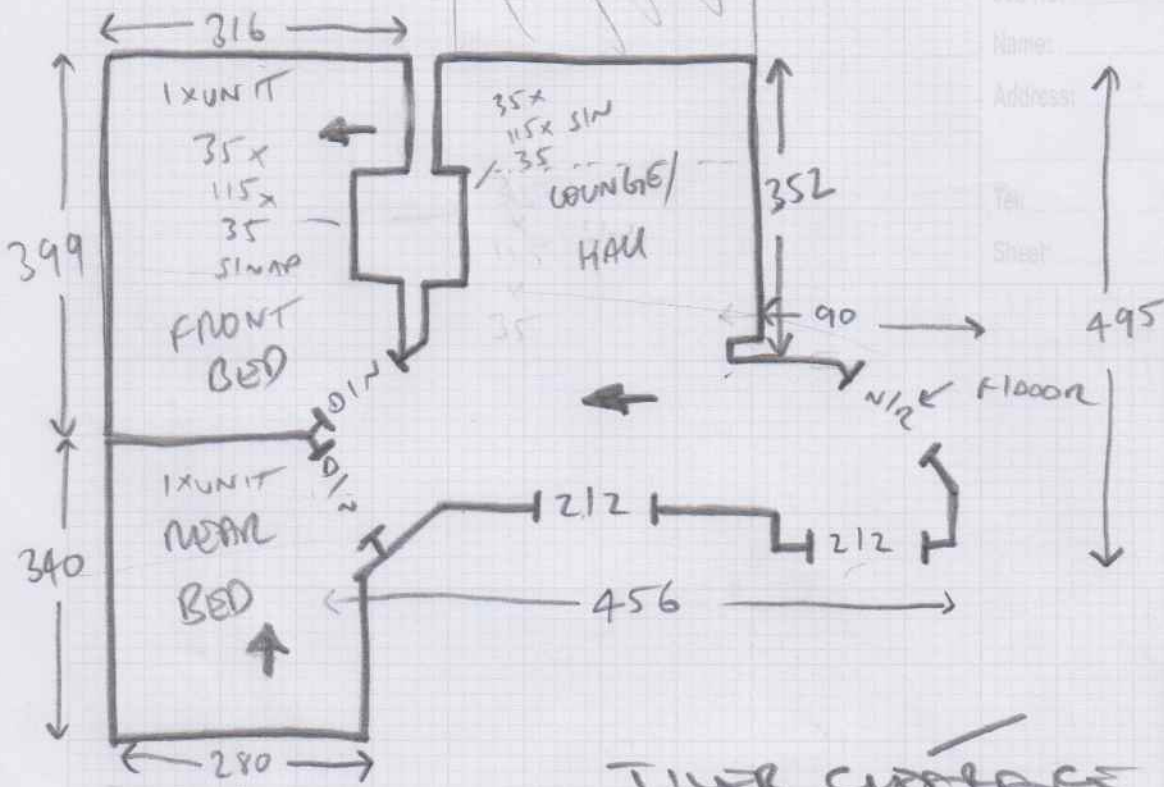 316
Name:
Address:
Tel:
Sheet:
1XUNIT
35x
115x
35
399
FRONT
BED
35x
115x SIN
35
LOUNGE/
HALL
352
90
495
D/N
D/N
N/R
F/DOOR
1XUNIT
REAR
BED
340
212
212
456
280